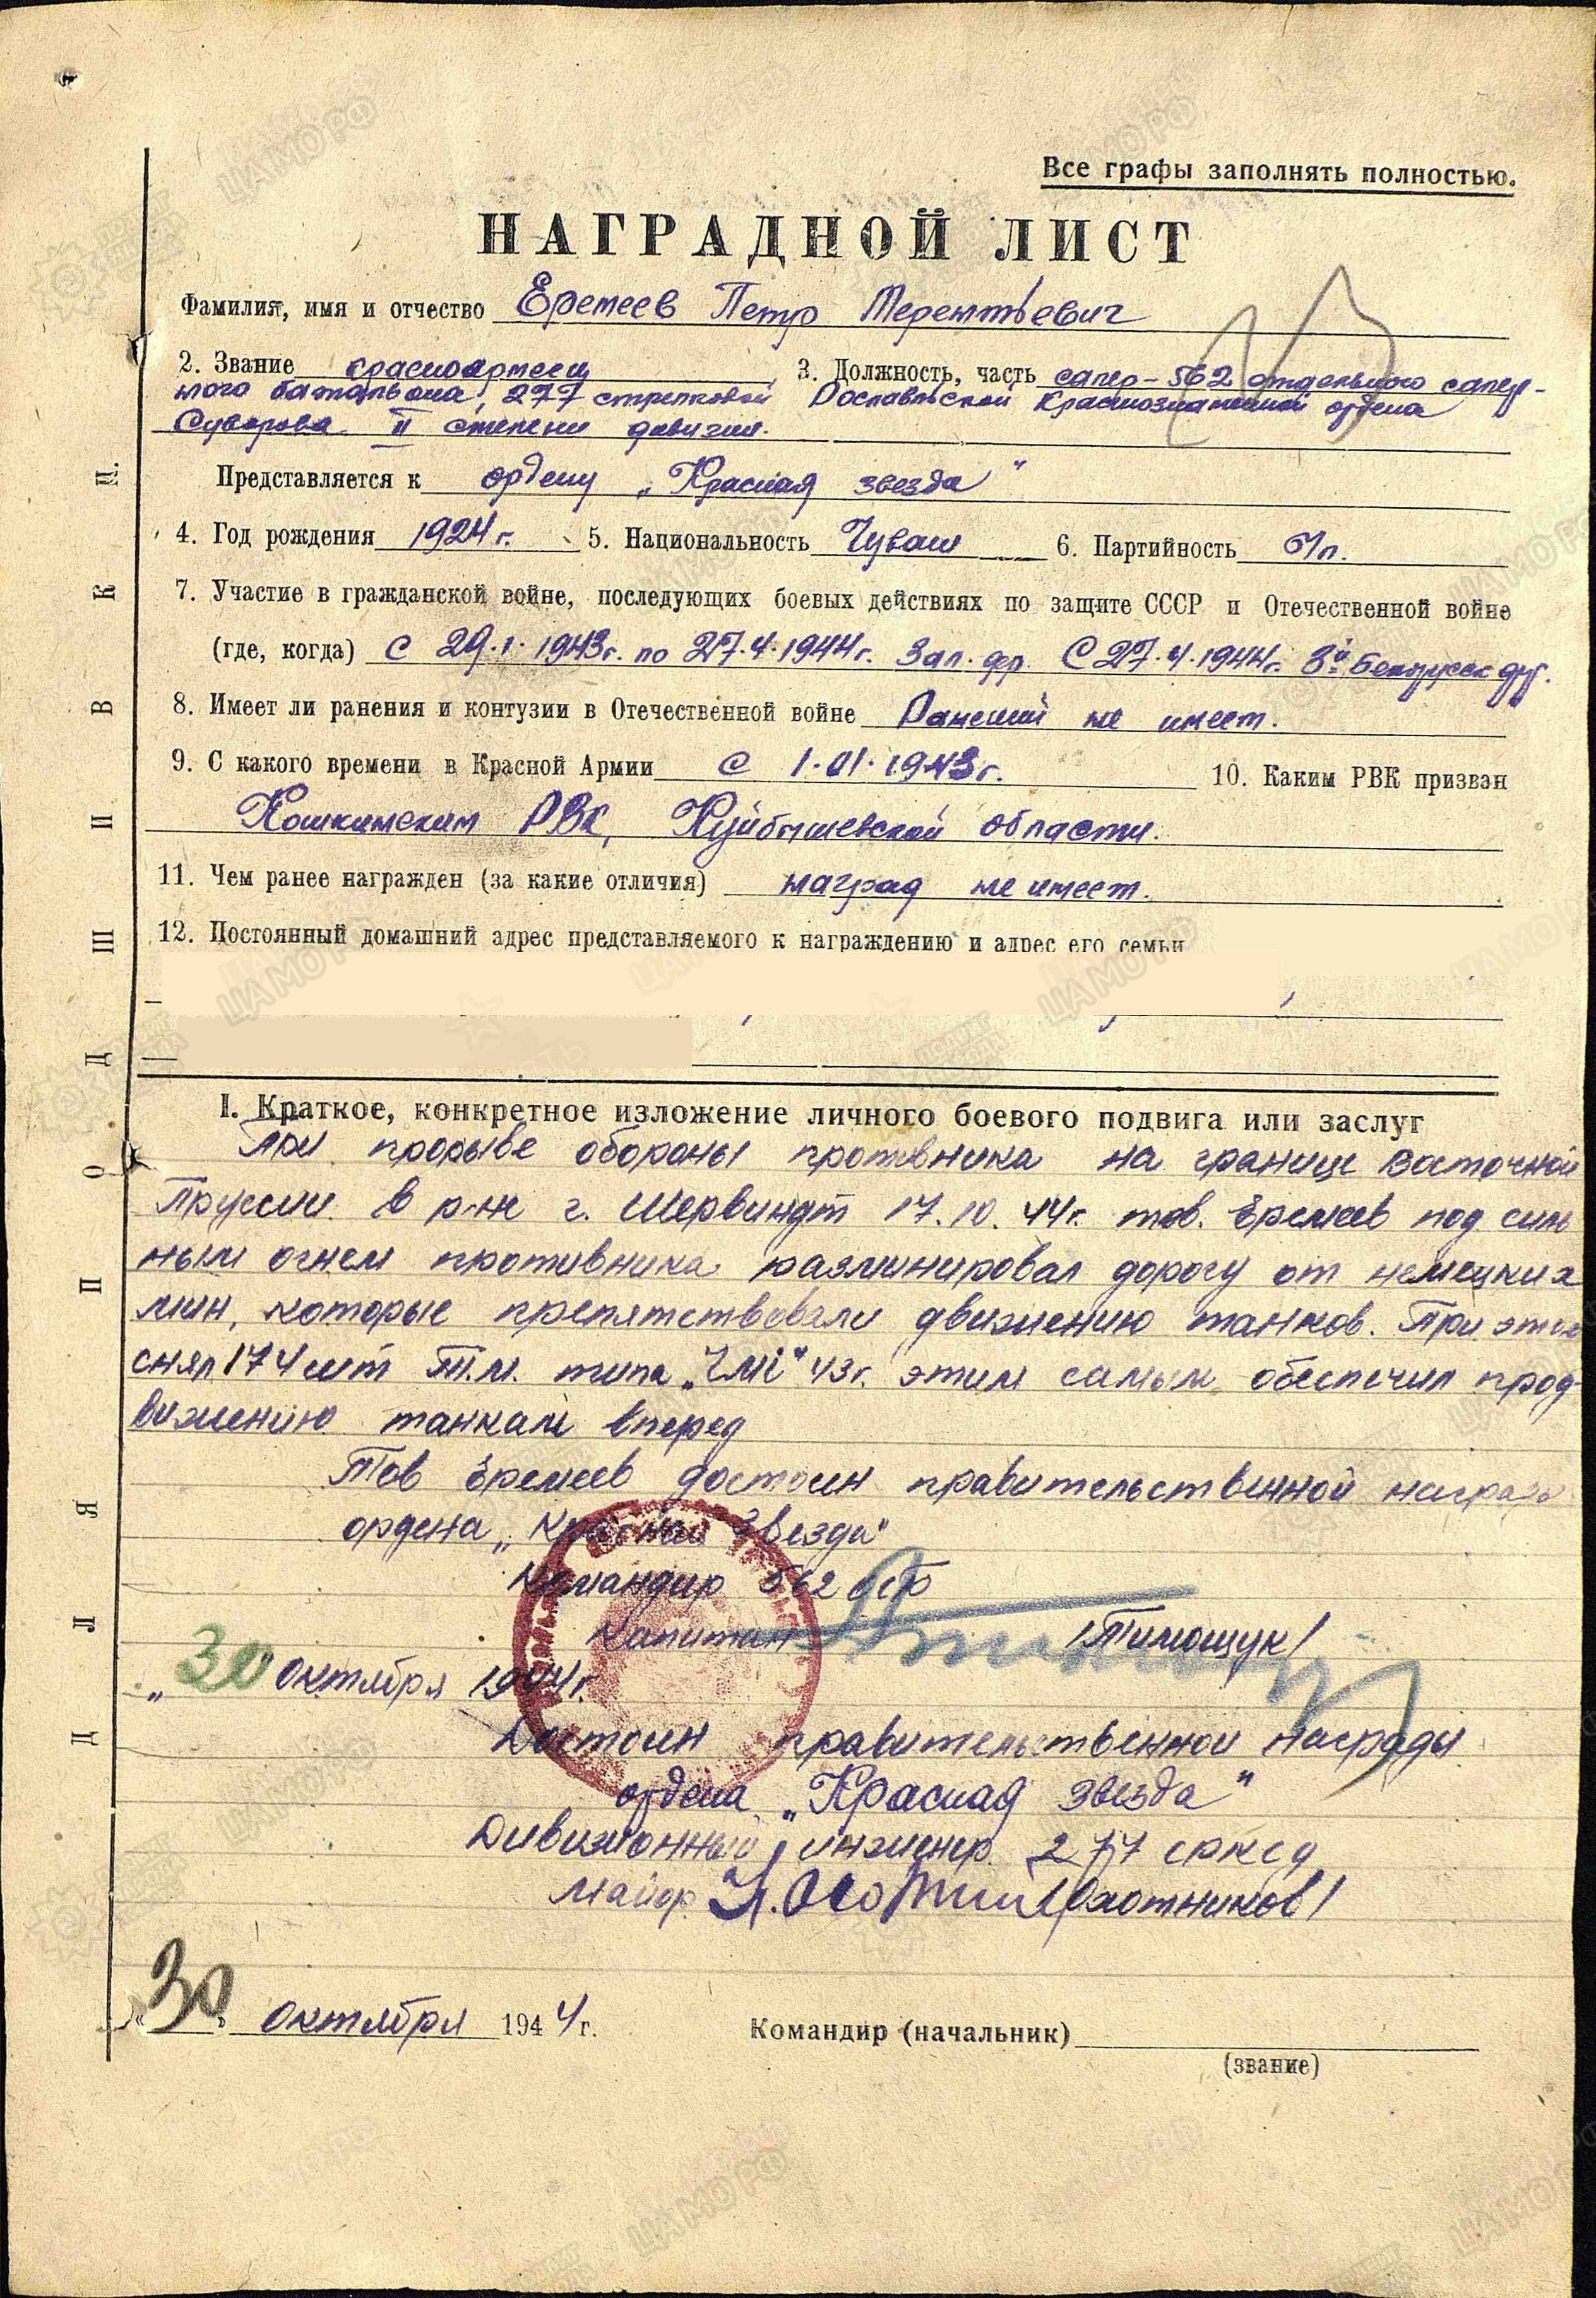 Все графы заполнять полностью.
НАГРАДНОЙ ЛИСТ
Фамилия, имя и отчество Еремеев Петр Терентьевич
2. Звание красноармеец 3. Должность, часть сапер-562 отдельного сапер-
ного батальона, 277 стрелковой Рославльской Краснознаменной ордена
Суворова II степени дивизии.
Представляется к ордену „Красная звезда"
4. Год рождения 1924 г. 5. Национальность Чуваш 6. Партийность б/п.
7. Участие в гражданской войне, последующих боевых действиях по защите СССР и Отечественной войне
(где, когда) С 29.1.1943г. по 27.4.1944г. Зап. фр. С 27.4.1944г. 3й Белорусск фр.
8. Имеет ли ранения и контузии в Отечественной войне Ранений не имеет.
9. С какого времени в Красной Армии с 1.01.1943г. 10. Каким РВК призван
Кошкинским РВК, Куйбышевской области.
11. Чем ранее награжден (за какие отличия) наград не имеет.
12. Постоянный домашний адрес представляемого к награждению и адрес его семьи
I. Краткое, конкретное изложение личного боевого подвига или заслуг
При прорыве обороны противника на границе Восточной
Пруссии в р-не г. Шервиндт 17.10.44г. тов. Еремеев под силь
ным огнем противника разминировал дорогу от немецких
мин, которые препятствовали движению танков. При этом
снял 174 шт Т.М. типа 43г. этим самым обеспечил прод-
вижению танкам вперед
Тов Еремеев достоин правительственной награды
ордена „Красная Звезда"
Командир 562 осб
Капитан /Тимощук/
„30 октября 1944г.
Достоин правительственной награды
ордена „Красная звезда"
Дивизионный инженер 277 срксд
Майор /Охотников/
„30" октября 1944г. Командир (начальник)
(звание)
ДЛЯ ПОДШИВКИ.
ЦАМО РФ
ПАМЯТЬ